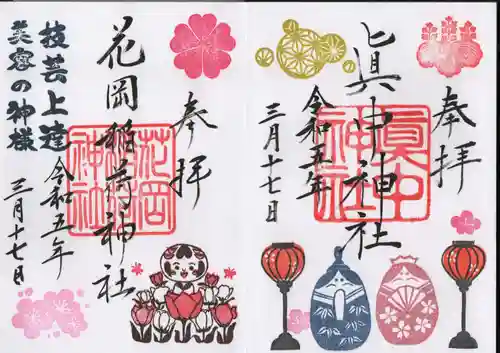 奉拝
眞中神社
眞中神社
令和五年
三月十七日
参拝
花岡稲荷神社
花岡神社
技芸上達
美容の神様
令和五年
三月十七日